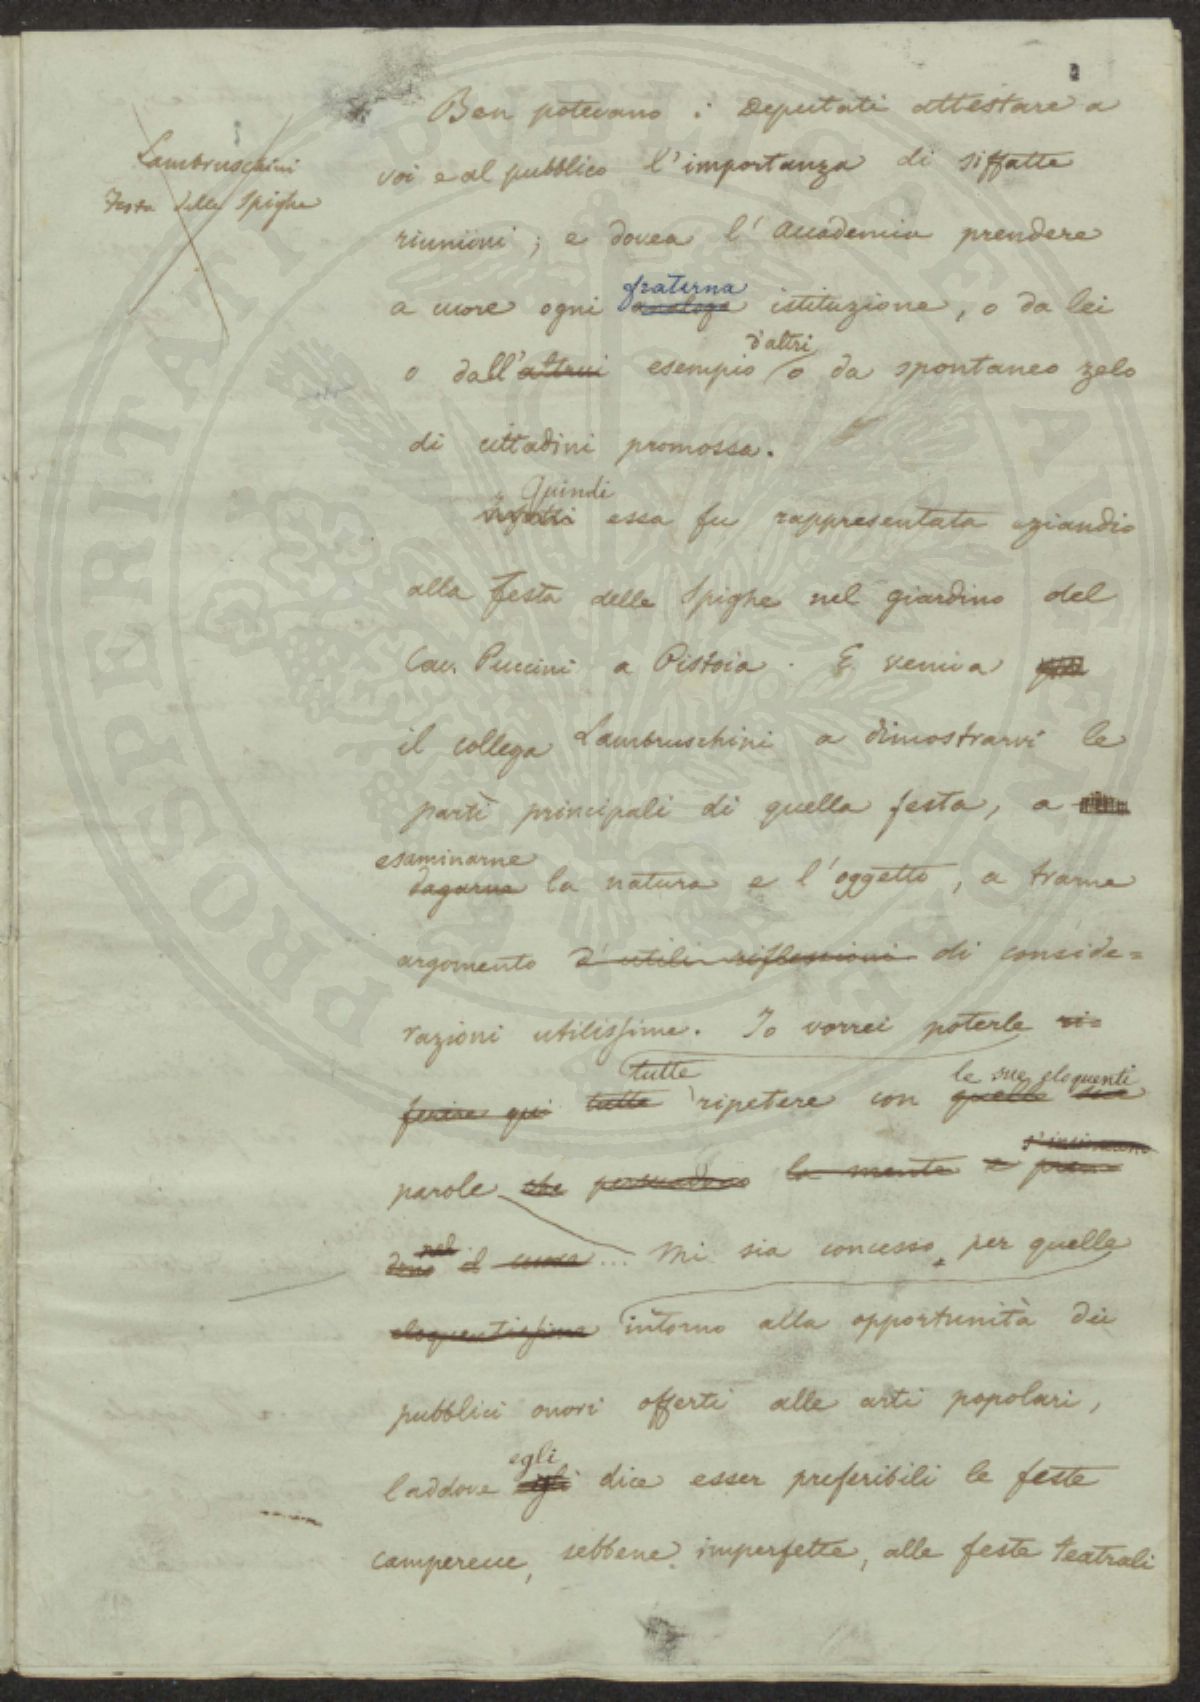 Lambruschini
Festa delle Spighe
Ben potevano i Deputati attestare a
voi e al pubblico l'importanza di siffatte
riunioni; e dovea l'Accademia prendere
fraterna
a cuore ogni analoga istituzione, o da lei
d'altri
o dall'altrui esempio o da spontaneo zelo
di cittadini promossa.
Quindi
Infatti essa fu rappresentata eziandio
alla festa delle Spighe nel giardino del
Cav. Puccini a Pistoia. E veniva
il collega Lambruschini a dimostrarvi le
parti principali di quella festa, a
esaminarne
la natura e l'oggetto, a trarne
argomento d'utili riflessioni di conside=
razioni utilissime. Io vorrei poterle ri=
tutte le sue eloquenti
ferire qui tutte ripetere con quelle sue
parole che persuadono la mente e
nel
il cuore... Mi sia concesso per quelle
eloquentissime intorno alla opportunità dei
pubblici onori offerti alle arti popolari,
egli
laddove egli dice esser preferibili le feste
camperecce, sebbene imperfette, alle feste teatrali
PROSPERITATI PUBLICAE AUGENDAE